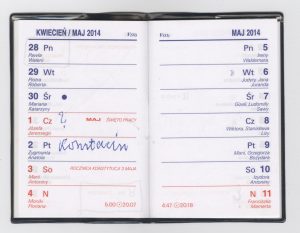 KWIECIEŃ / MAJ 2014
28 Pn
Pawła
Walerii
29 Wt
Piotra
Roberta
30 Śr
Mariana
Katarzyny
1 Cz ? MAJ ŚWIĘTO PRACY
Józefa
Jeremiego
2 Pt Konstancin
Zygmunta
Anatola
3 So ROCZNICA KONSTYTUCJI 3 MAJA
Marii
Antoniny
4 N
Moniki
Floriana
5.00 20.07
MAJ 2014
Pn 5
Ireny
Waldemara
Wt 6
Judyty, Jana
Juranda
Śr 7
Gizeli, Ludomiły
Sawy
Cz 8
Wiktora, Stanisława
Lizy
Pt 9
Marii, Grzegorza
Bożydara
So 10
Izydora
Antoniny
N 11
Franciszka
Mamerta
4.47 20.18